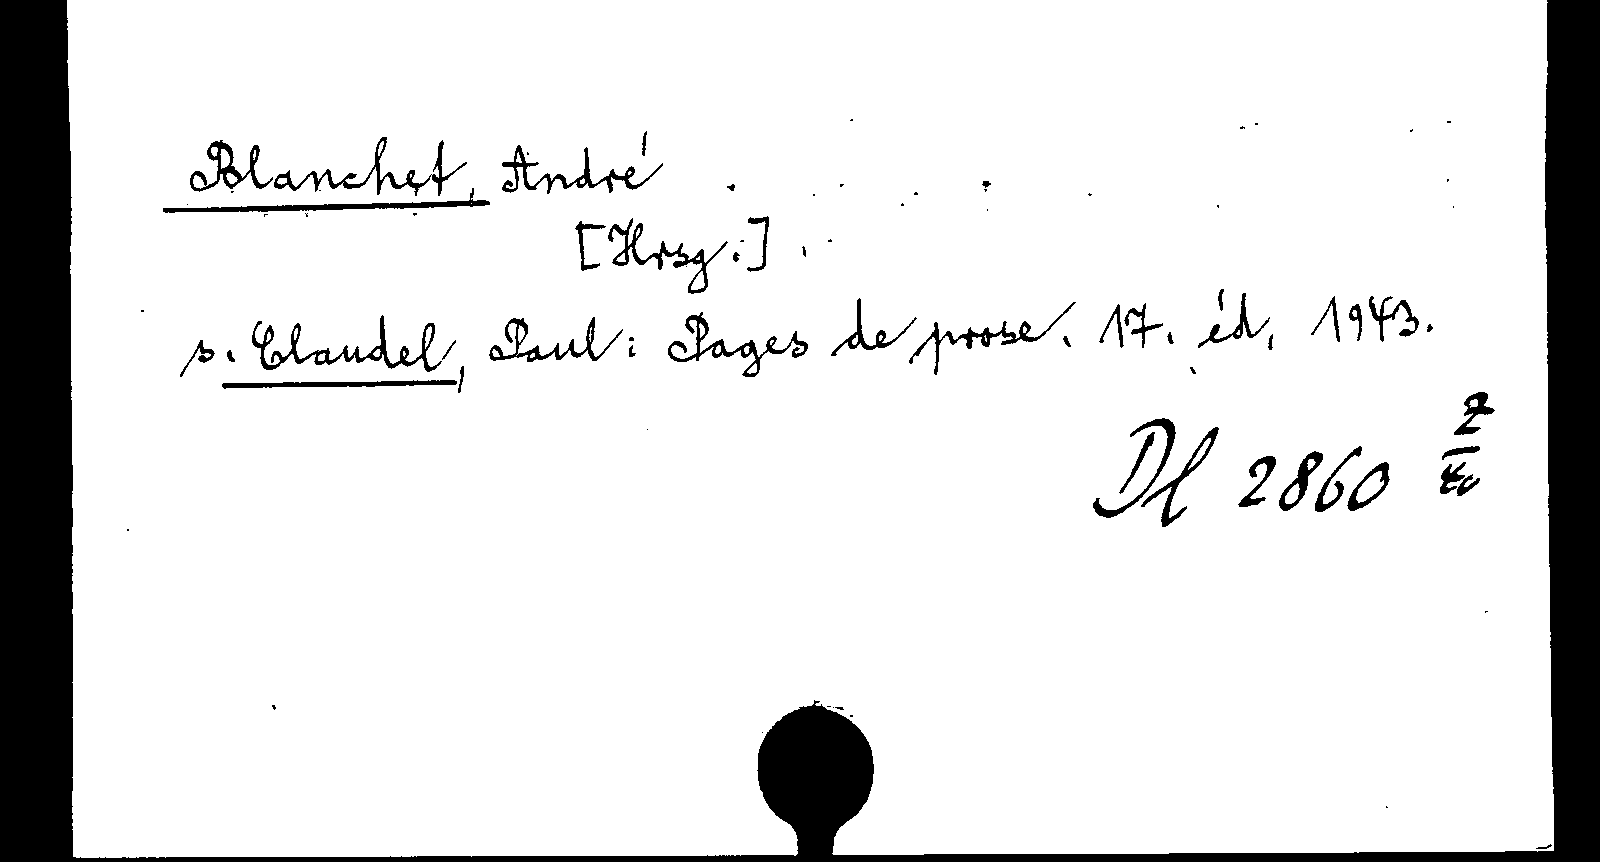 Blanchet, André
[Hrsg.]
s. Claudel, Paul: Pages de prose. 17. éd. 1943.
Dl 2860